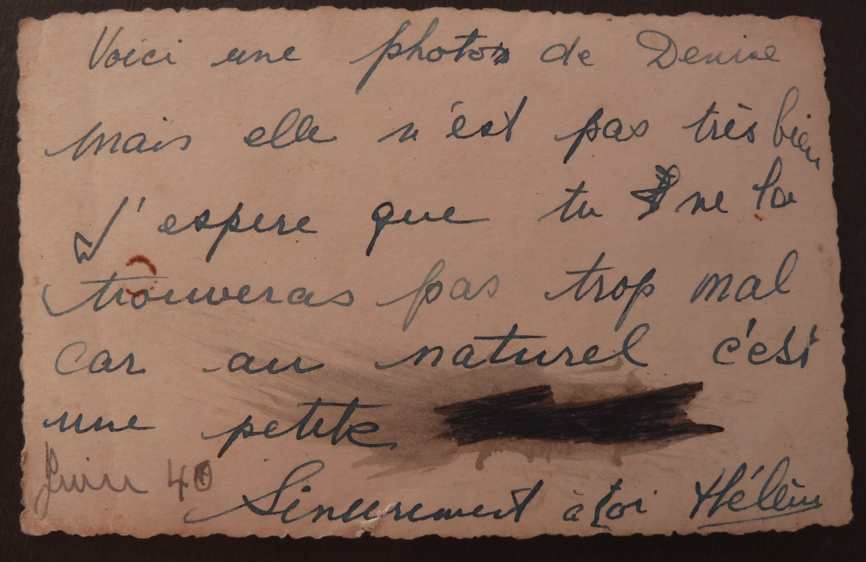 Voici une photo de Denise
mais elle n'est pas très bien
J'espere que tu ne la
trouveras pas trop mal
car au naturel c'est
une petite
Juin 40
Sincerement à toi Hélène